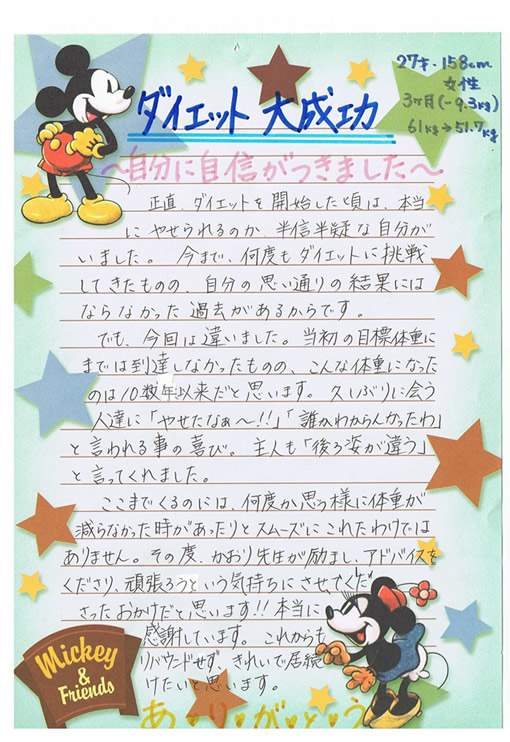 27才・158cm
女性
3ヶ月(-9.3kg)
61kg→51.7kg
ダイエット 大成功
～自分に自信がつきました～
正直、ダイエットを開始した頃は、本当
にやせられるのか、半信半疑な自分が
いました。 今まで、何度もダイエットに挑戦
してきたものの、自分の思い通りの結果には
ならなかった過去があるからです。
でも、今回は違いました。当初の目標体重に
までは到達しなかったものの、こんな体重になった
のは10数年以来だと思います。 久しぶりに会う
人達に「やせたなぁ～!!」「誰かわからんかったわ」
と言われる事の喜び。 主人も「後ろ姿が違う」
と言ってくれました。
ここまでくるのには、何度か思う様に体重が
減らなかった時があったりとスムーズにこれたわけでは
ありません。その度、かおり先生が励まし、アドバイスを
くださり、頑張ろうという気持ちにさせてくだ
さったおかげだと思います!! 本当に
感謝しています。 これからも
リバウンドせず、きれいで居続
けたいと思います。
Mickey
&
Friends
あ・り・が・と・う